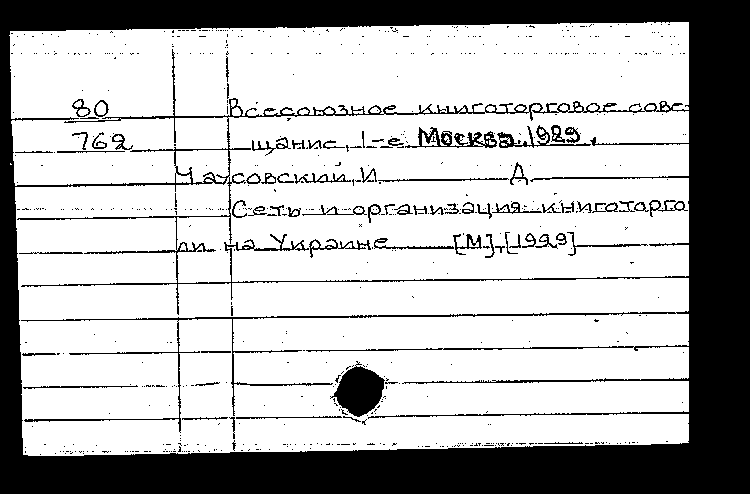 80 Всесоюзное книготорговое сове-
762 щание, 1-е Москва, 1929.
Чаусовский, И. Д.
Сеть и организация книготорго
ли на Украине [М], [1929]